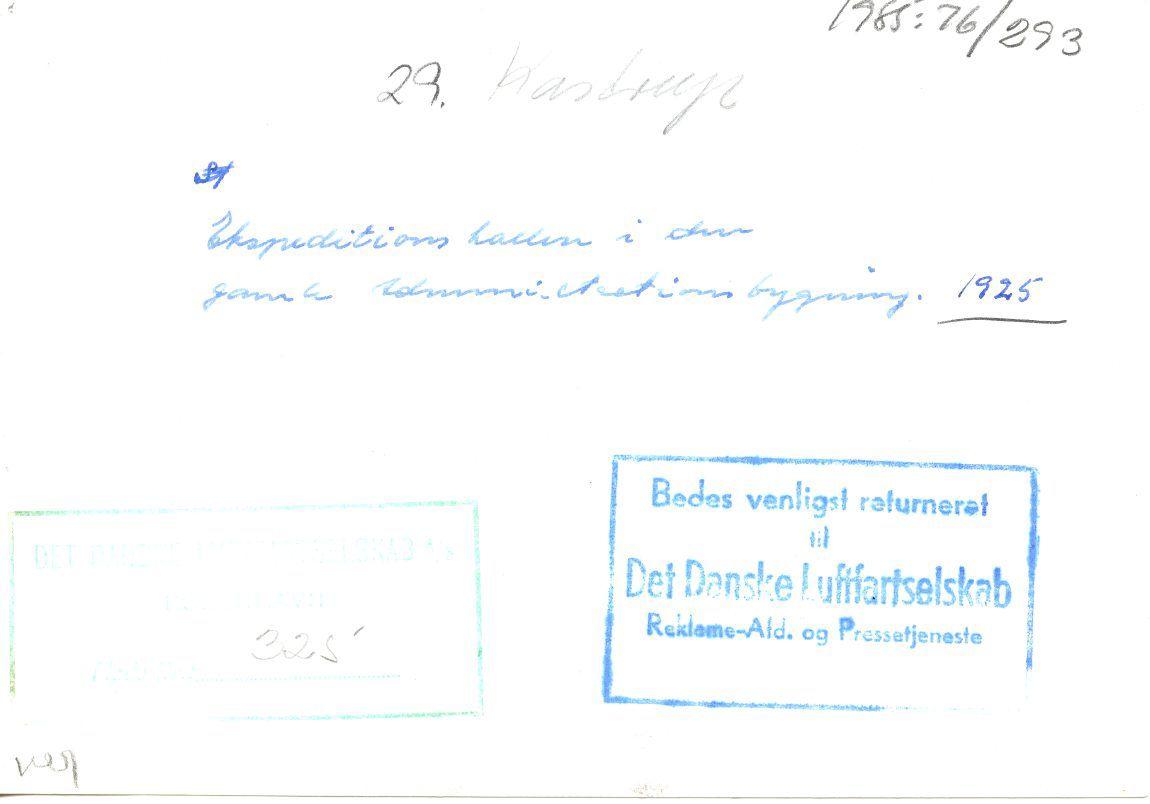 1985:76/293
29. Kastrup
Ekspeditionshallen i den
gamle Administrationsbygning. 1925
DET DANSKE LUFTFARTSELSKAB A/S
325
Bedes venligst returneret
til
Det Danske Luftfartselskab
Reklame-Afd. og Pressetjeneste